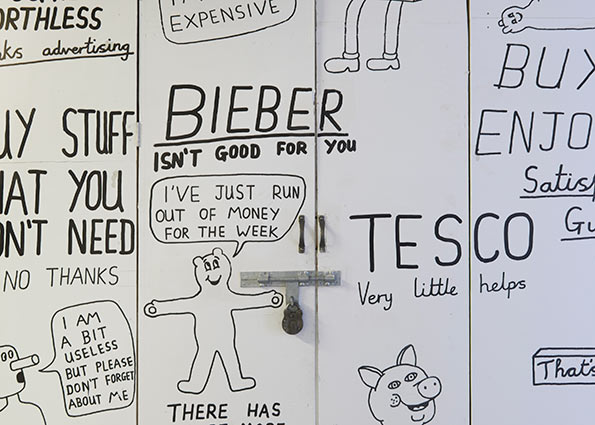 ORTHLESS
ks advertising
UY STUFF
HAT YOU
ON'T NEED
NO THANKS
I AM
A BIT
USELESS
BUT PLEASE
DON'T FORGET
ABOUT ME
EXPENSIVE
BIEBER
ISN'T GOOD FOR YOU
I'VE JUST RUN
OUT OF MONEY
FOR THE WEEK
THERE HAS
TESCO
Very little helps
BUY
ENJO
Satisf
Gu
That's